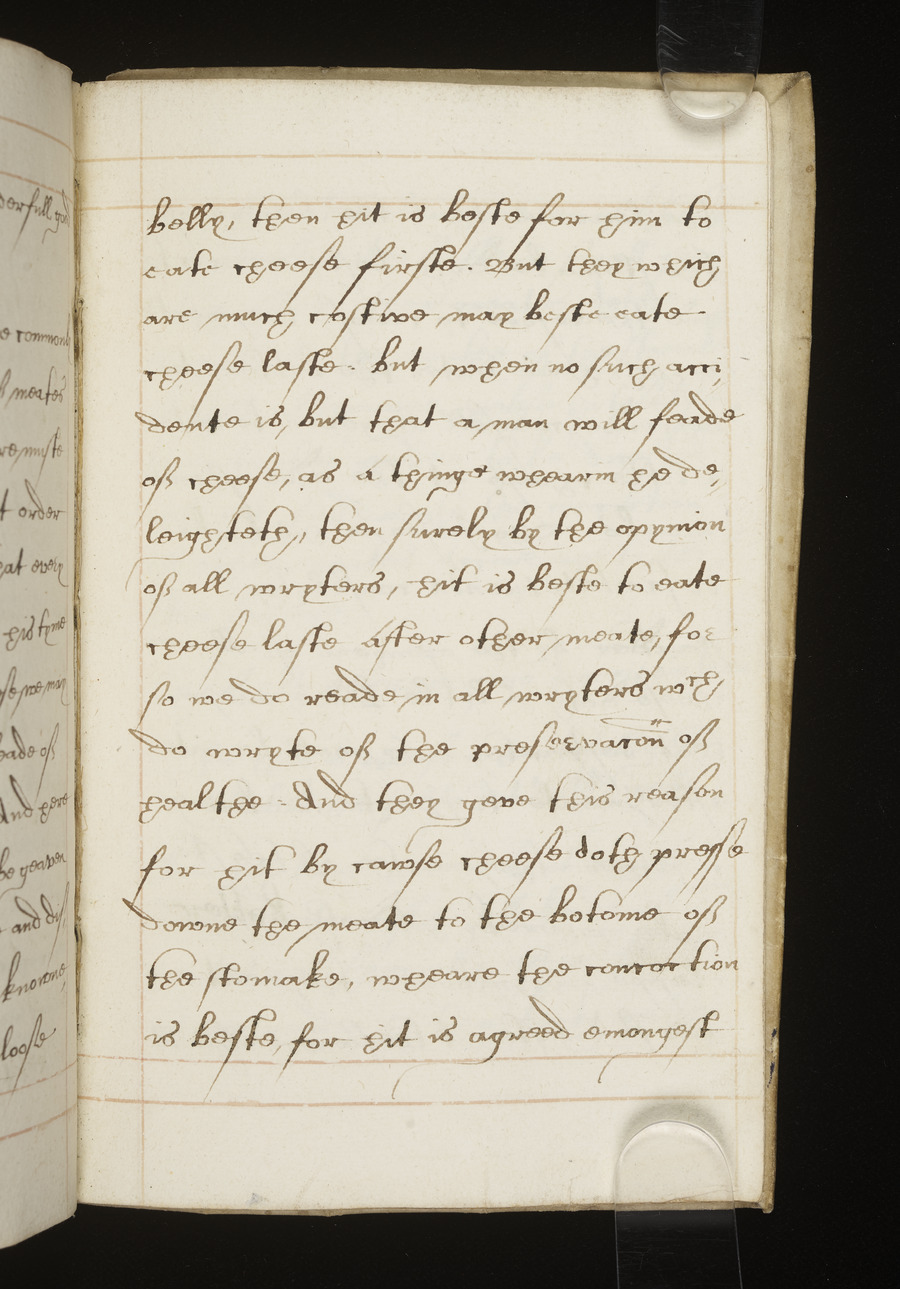 belly, then hit is beste for him to
eate cheese firste. But they which
are much costive may beste eate
cheese laste. but when no such acci,
dente is, but that a man will feade
of cheese, as a thinge whearin he de,
leighteth, then surely by the opynion
of all wryters, hit is beste to eate
cheese laste after other meate, for
so we do reade in all wryters wch
do wryte of the preservacon̄ of
healthe. And they geve this reason
for hit by cawse cheese doth presse
downe the meate to the botome of
the stomake, wheare the concoction
is beste, for hit is agreed emongest
derfull
e commonly
meates
re muste
t order
hat every
his tyme
se we may
eade of
And here
be geaven
and dis,
knowne,
loose